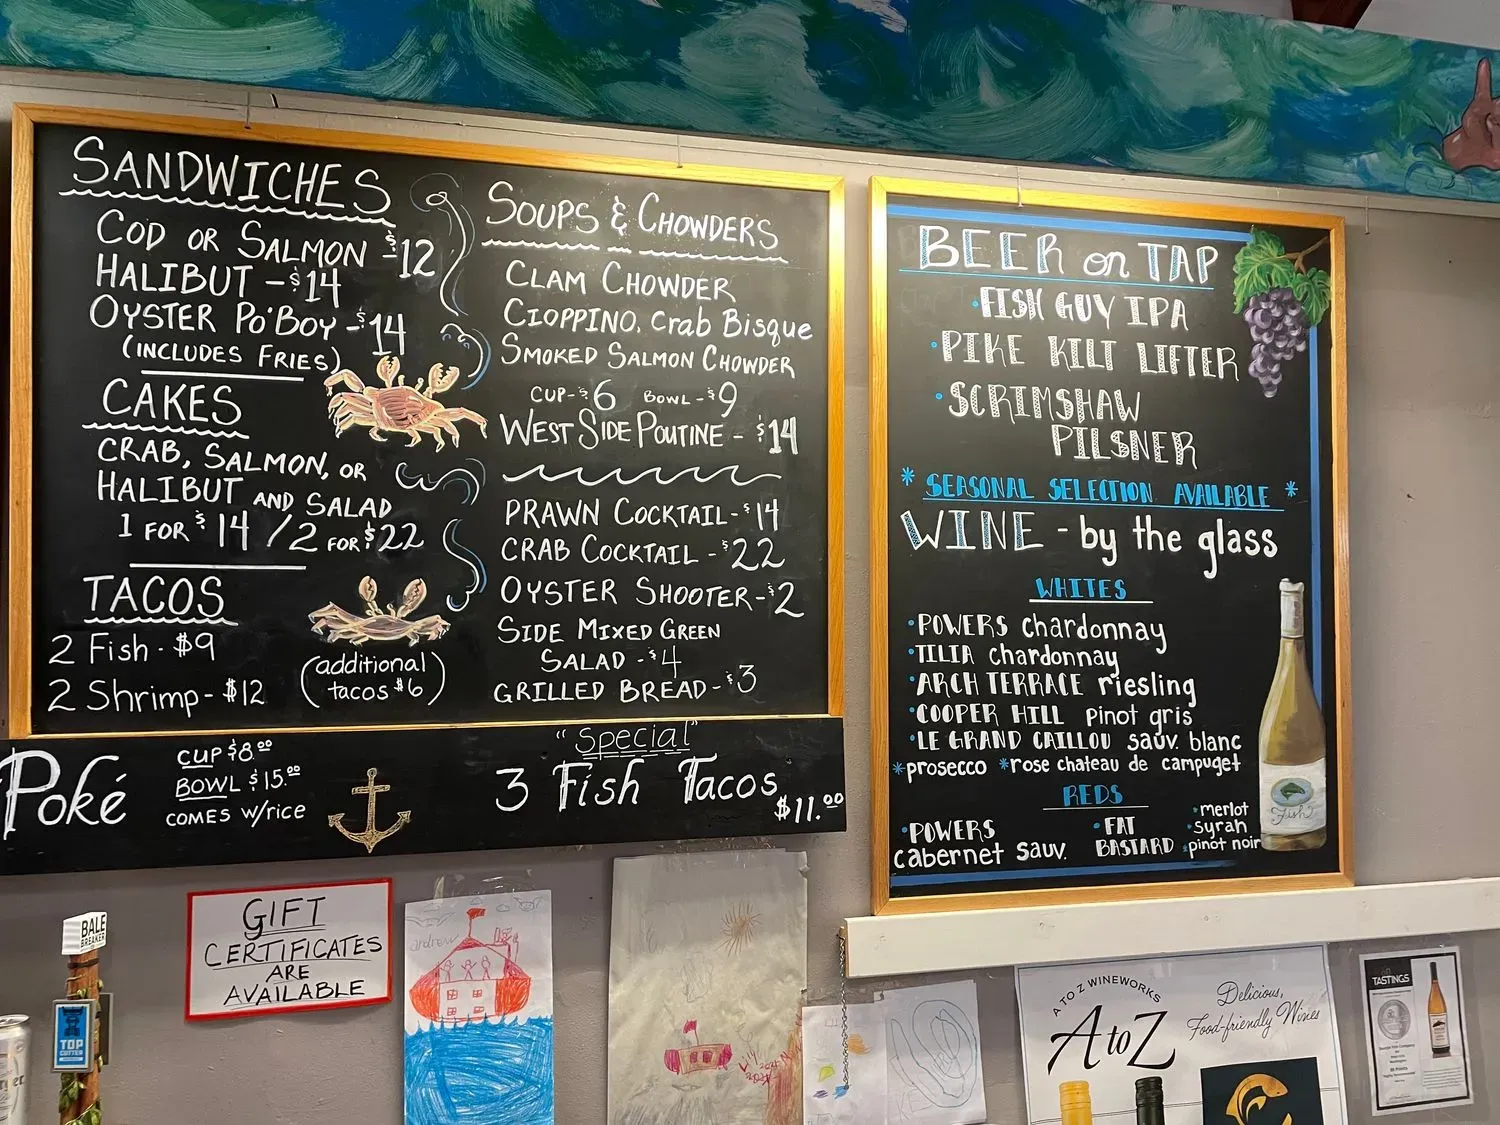 SANDWICHES
COD OR SALMON - $12
HALIBUT - $14
OYSTER PO'BOY - $14
(INCLUDES FRIES)
CAKES
CRAB, SALMON, OR
HALIBUT AND SALAD
1 FOR $14 / 2 FOR $22
TACOS
2 Fish - $9
2 Shrimp - $12
(additional
tacos $6)
SOUPS & CHOWDERS
CLAM CHOWDER
CIOPPINO, Crab Bisque
SMOKED SALMON CHOWDER
CUP - $6 BOWL - $9
WEST SIDE POUTINE - $14
PRAWN COCKTAIL - $14
CRAB COCKTAIL - $22
OYSTER SHOOTER - $2
SIDE MIXED GREEN
SALAD - $4
GRILLED BREAD - $3
Poké
CUP $8.00
BOWL $15.00
COMES w/rice
"Special"
3 Fish Tacos
$11.00
BEER on TAP
FISH GUY IPA
PIKE KILT LIFTER
SCRIMSHAW
PILSNER
* SEASONAL SELECTION AVAILABLE *
WINE - by the glass
WHITES
POWERS chardonnay
TILIA chardonnay
ARCH TERRACE riesling
COOPER HILL pinot gris
LE GRAND CAILLOU sauv. blanc
*prosecco *rose chateau de campuget
REDS
POWERS
cabernet sauv.
FAT
BASTARD
merlot
syrah
pinot noir
Fish
GIFT
CERTIFICATES
ARE
AVAILABLE
BALE
BREAKER
TOP
CUTTER
andrew
A TO Z WINEWORKS
A to Z
Delicious,
Food-friendly Wines
TASTINGS